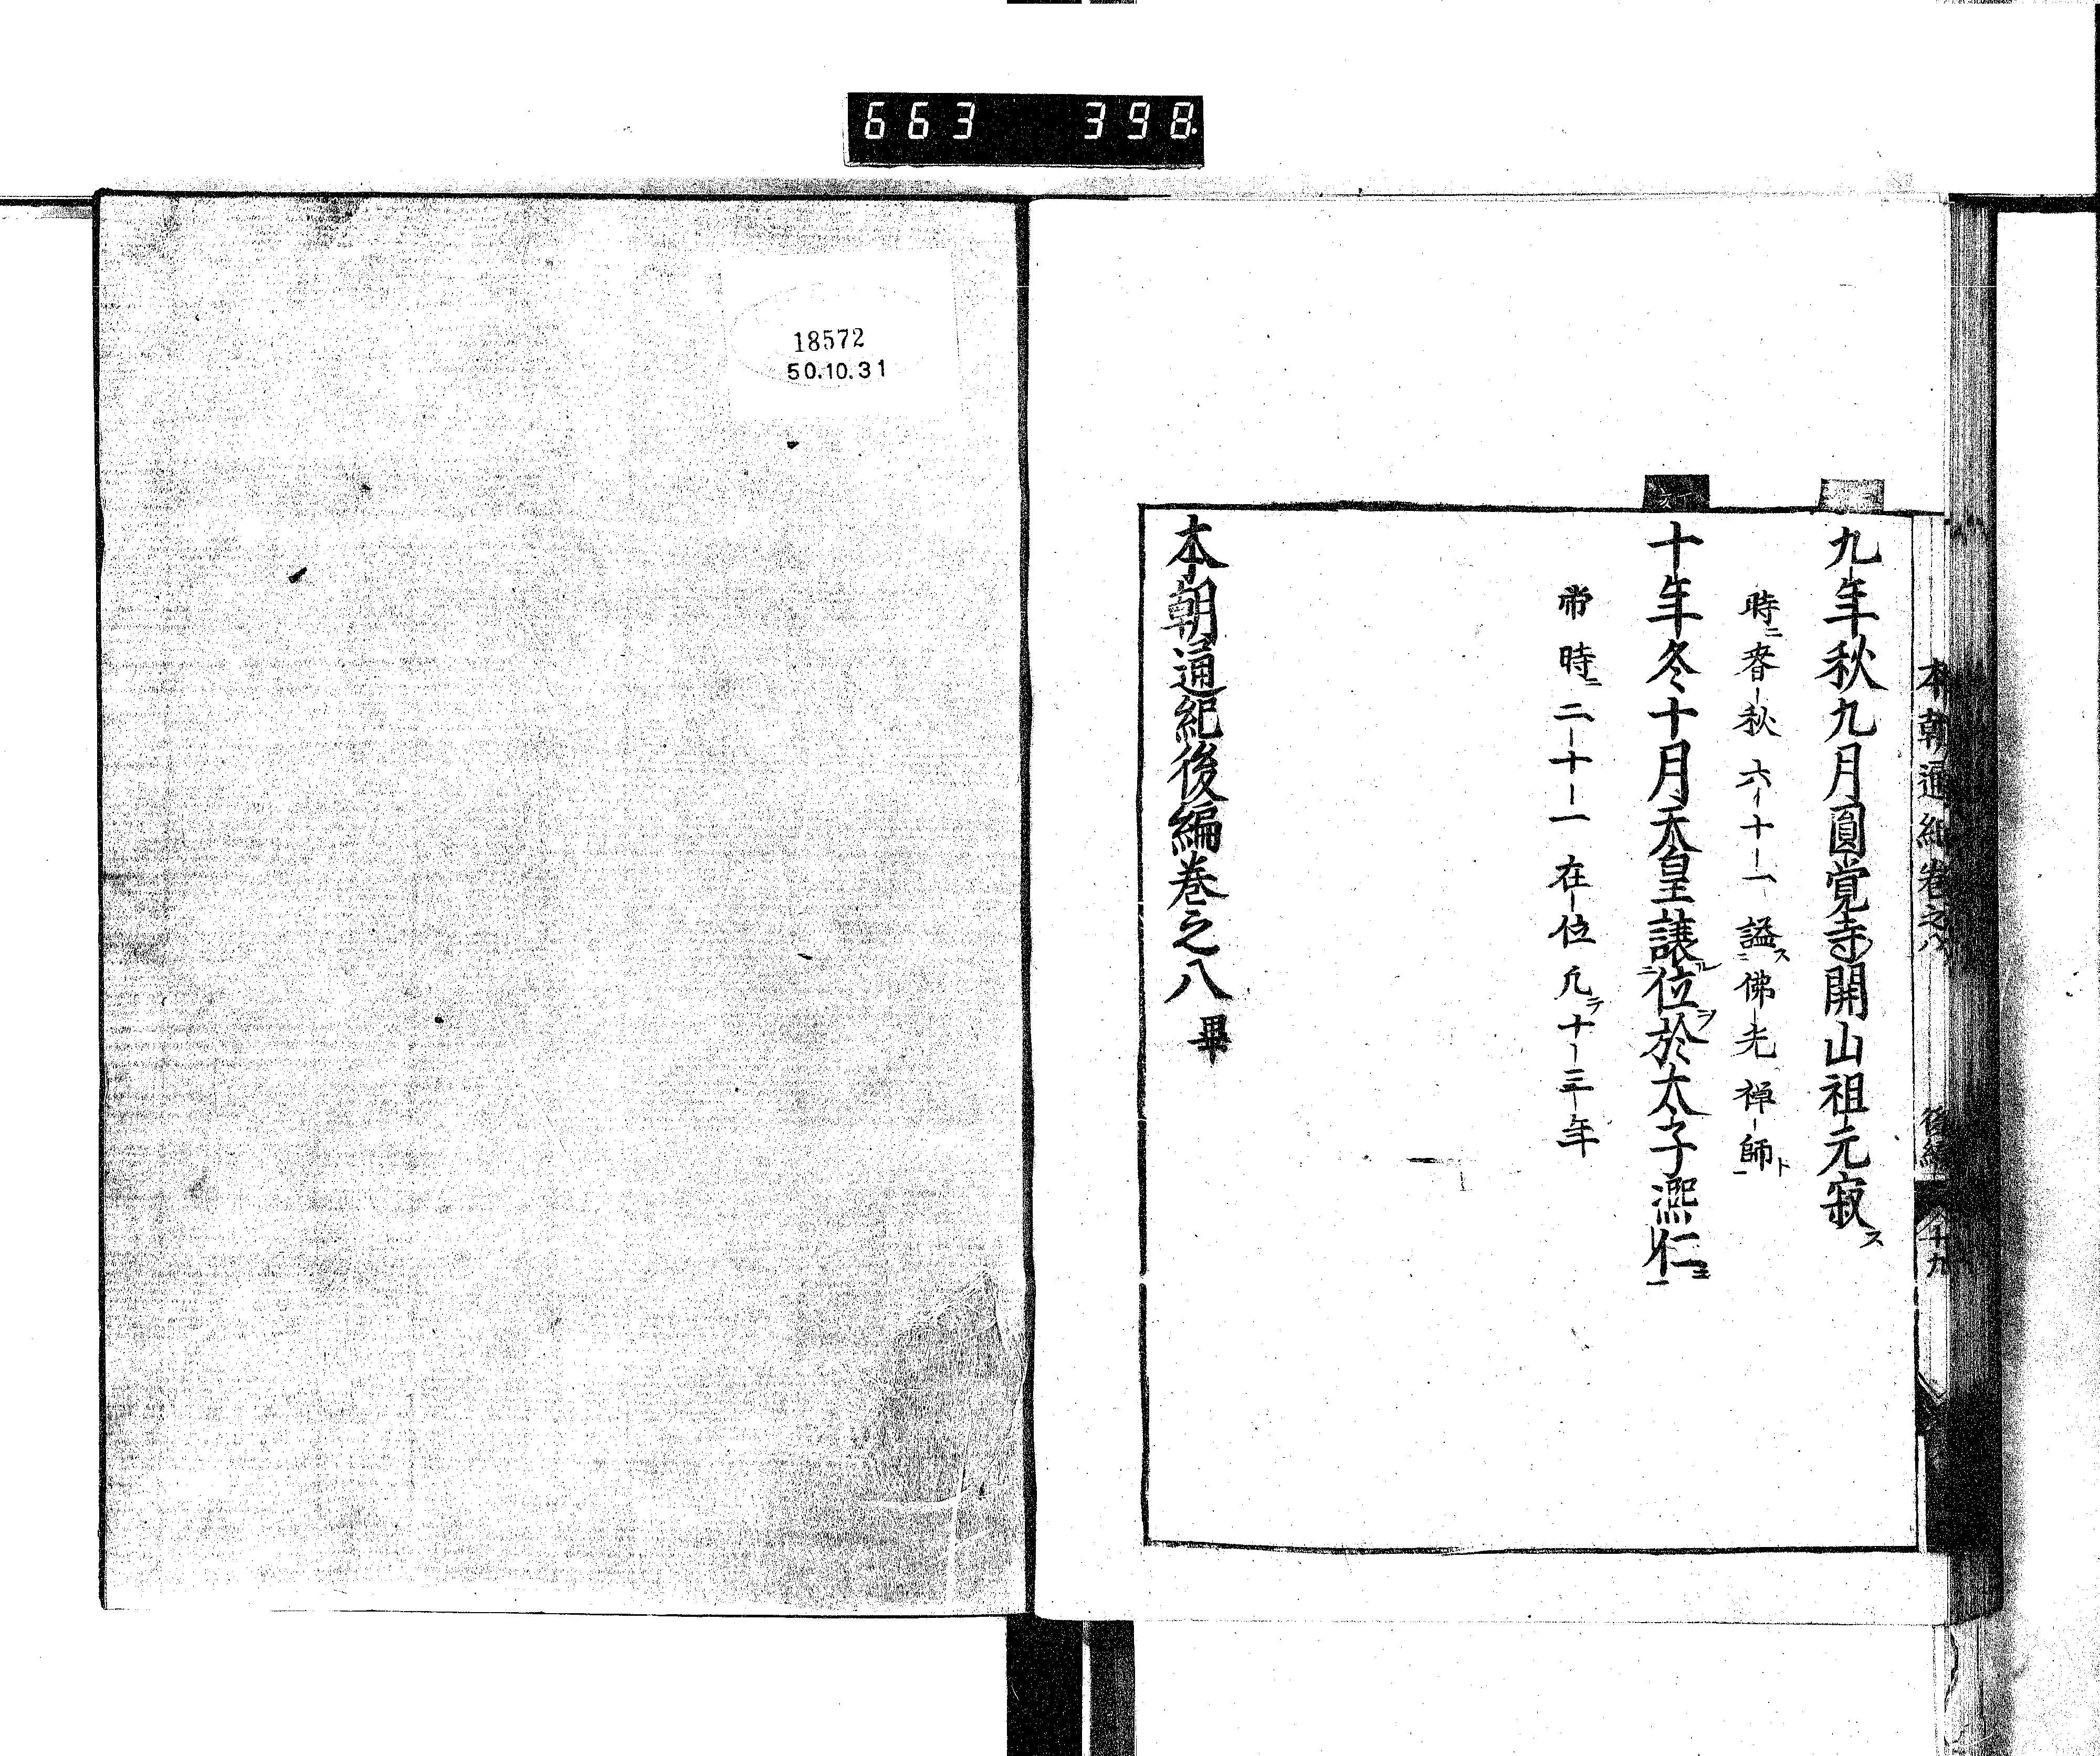 663 398.
本朝通紀卷之八 後編 八十九
九年秋九月圓覺寺開山祖元寂ス
時ニ春秋六十一諡ス佛光禅師ト
十年冬十月天皇讓ル位ヲ於太子凞仁ニ
當時ニ二十一在位凡テ十三年
本朝通紀後編卷之八 畢
18572
50.10.31